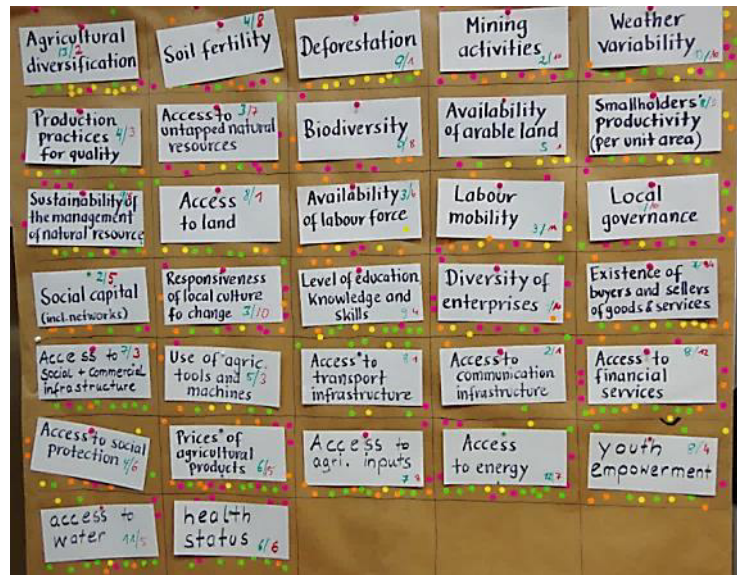 Agricultural
diversification
13/2
Soil fertility
4/8
Deforestation
9/1
Mining
activities
2/11
Weather
variability
Production
practices
for quality
4/3
Access to
untapped natural
resources
3/7
Biodiversity
Availability
of arable land
Smallholders'
productivity
(per unit area)
Sustainability of
the management
of natural resource
Access
to land
8/1
Availability
of labour force
Labour
mobility
Local
governance
Social capital
(incl. networks)
2/5
Responsiveness
of local culture
to change
3/10
Level of education,
Knowledge and
skills
9 4
Diversity of
enterprises
Existence of
buyers and sellers
of goods & services
Access to
Social + Commercial
infrastructure
7/3
Use of agric.
tools and
machines
5/3
Access to
transport
infrastructure
Access to
communication
infrastructure
2/1
Access to
financial
services
8/12
Access to social
protection
4/6
Prices of
agricultural
products
6/5
Access to
agri. inputs
Access
to energy
12/7
youth
empowerment
access to
water
12/5
health
status
6/6